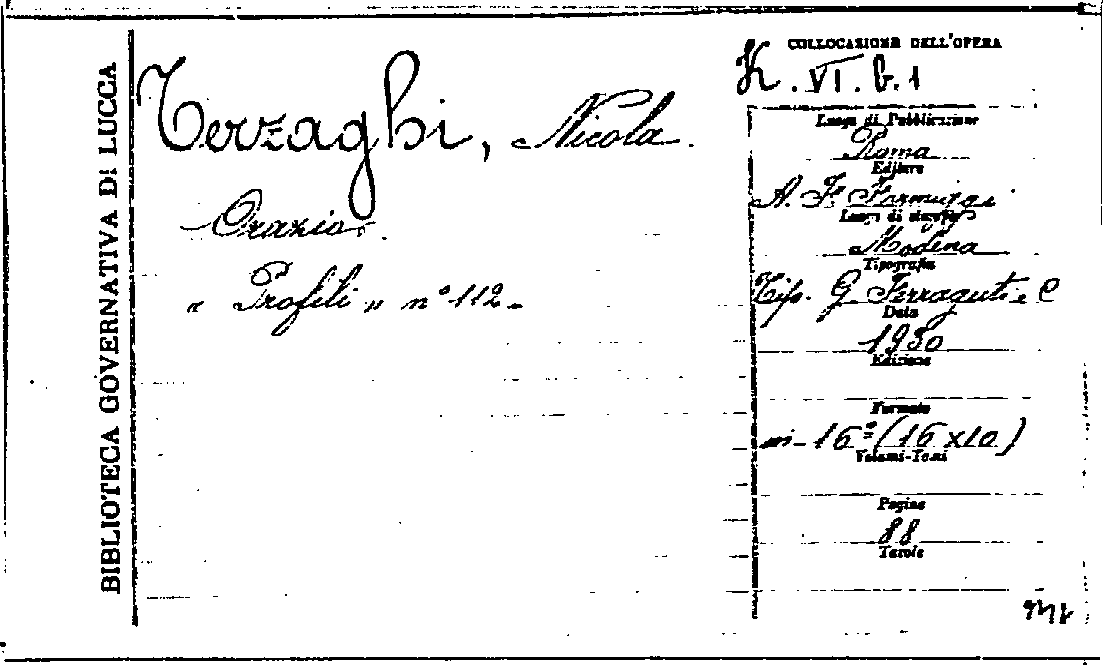 BIBLIOTECA GOVERNATIVA DI LUCCA
Terzaghi, Nicola.
Orazio.
" Profili " n° 112.
COLLOCAZIONE DELL'OPERA
K. VI. G. 1
Luogo di Pubblicazione
Roma
Editore
A. F. Formiggi
Luogo di stampa
Modena
Tipografia
Tip. G. Ferraguti e C
Data
1930
Edizione
Formato
in-16° (16x10)
Volumi-Tomi
Pagine
88
Tavole